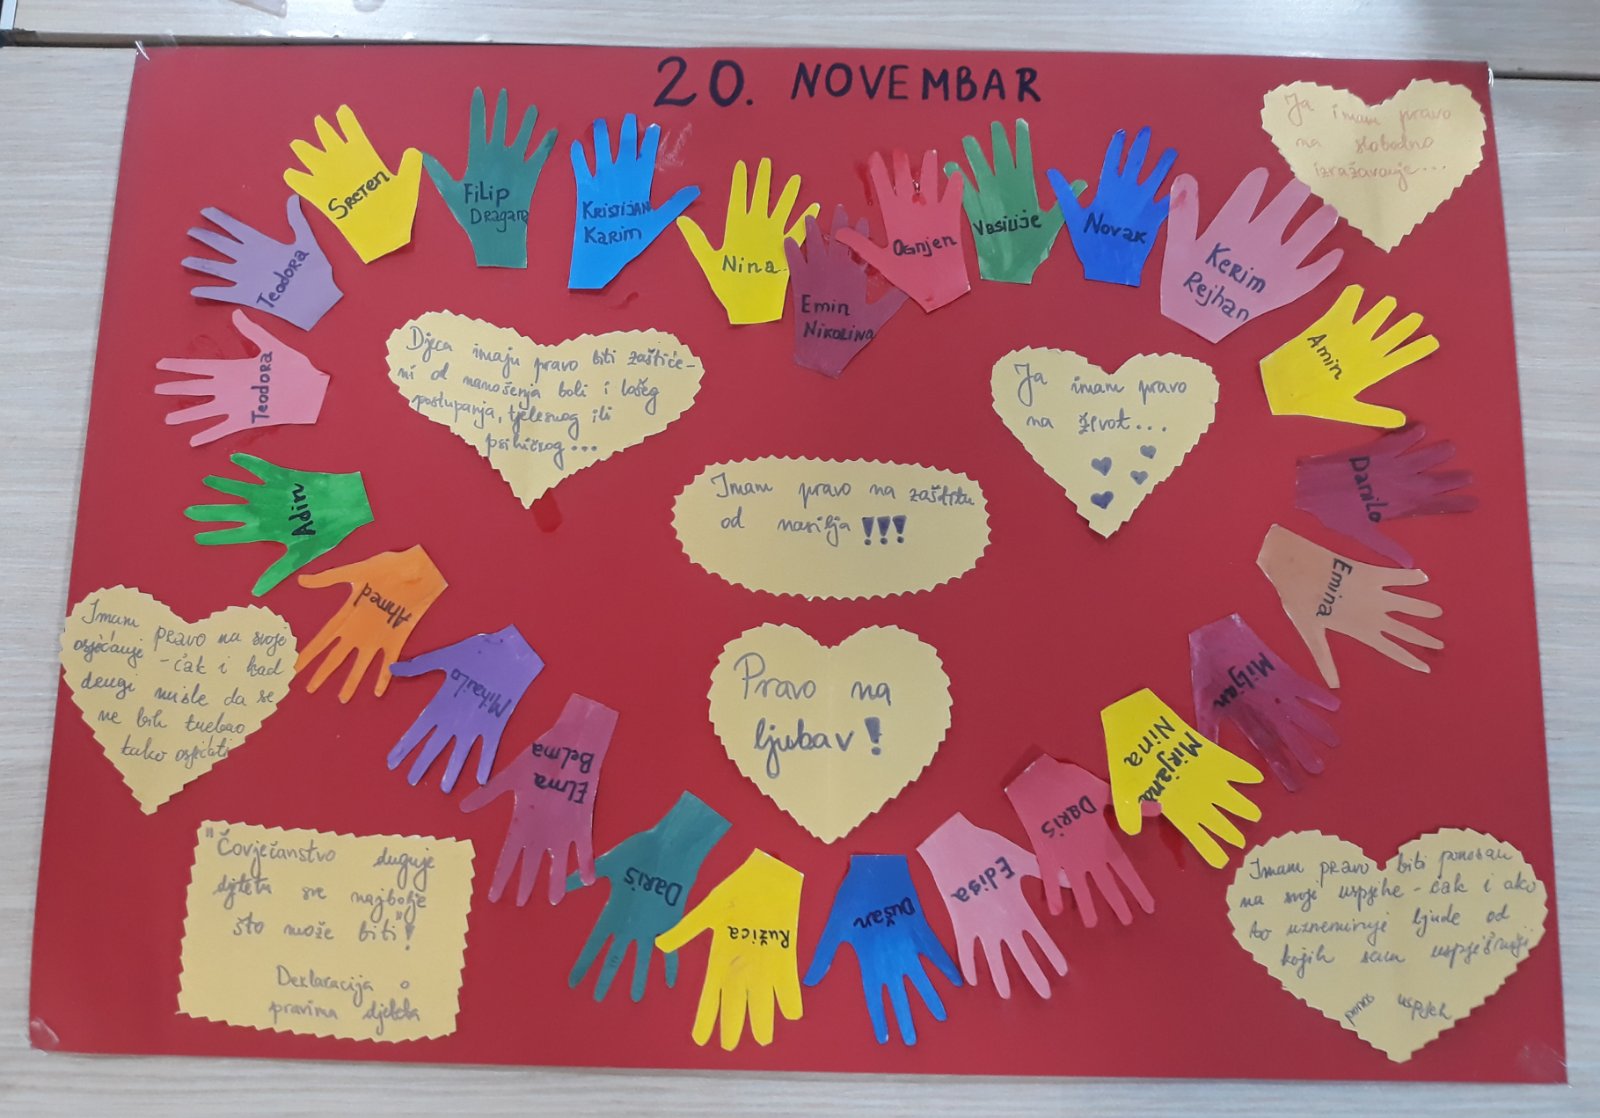 20. NOVEMBAR
Ja imam pravo
na slobodno
izražavanje...
Sreten
Filip
Dragana
Kristijan
Karim
Nina
Emin
Nikolina
Ognjen
Vasilije
Novak
Kerim
Rejhan
Amin
Danilo
Emina
Miljan
Mirjana
Nina
Daris
Edisa
Dušan
Ružica
Daris
Elma
Belma
Mihailo
Ahmed
Adin
Teodora
Teodora
Djeca imaju pravo biti zaštiće-
ni od nanošenja boli i lošeg
postupanja, tjelesnog ili
psihičkog...
Ja imam pravo
na život...
Imam pravo na zaštitu
od nasilja !!!
Imam pravo na svoje
osjećanje - čak i kad
drugi misle da se
ne bih trebao
tako osjećati
Pravo na
ljubav!
"Čovječanstvo duguje
djetetu sve najbolje
što može biti"!
Deklaracija o
pravima djeteta
Imam pravo biti ponosan
na svoje uspjehe - čak i ako
to uznemiruje ljude od
kojih sam uspješniji
ponos uspjeh